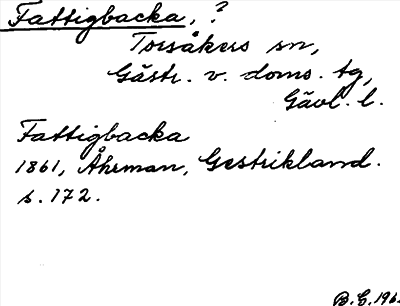 Fattigbacka, ?
Torsåkers sn,
Gästr. v. doms. tg,
Gävl. l.
Fattigbacka
1861, Åhrman, Gestrikland.
s. 172.
B.E.